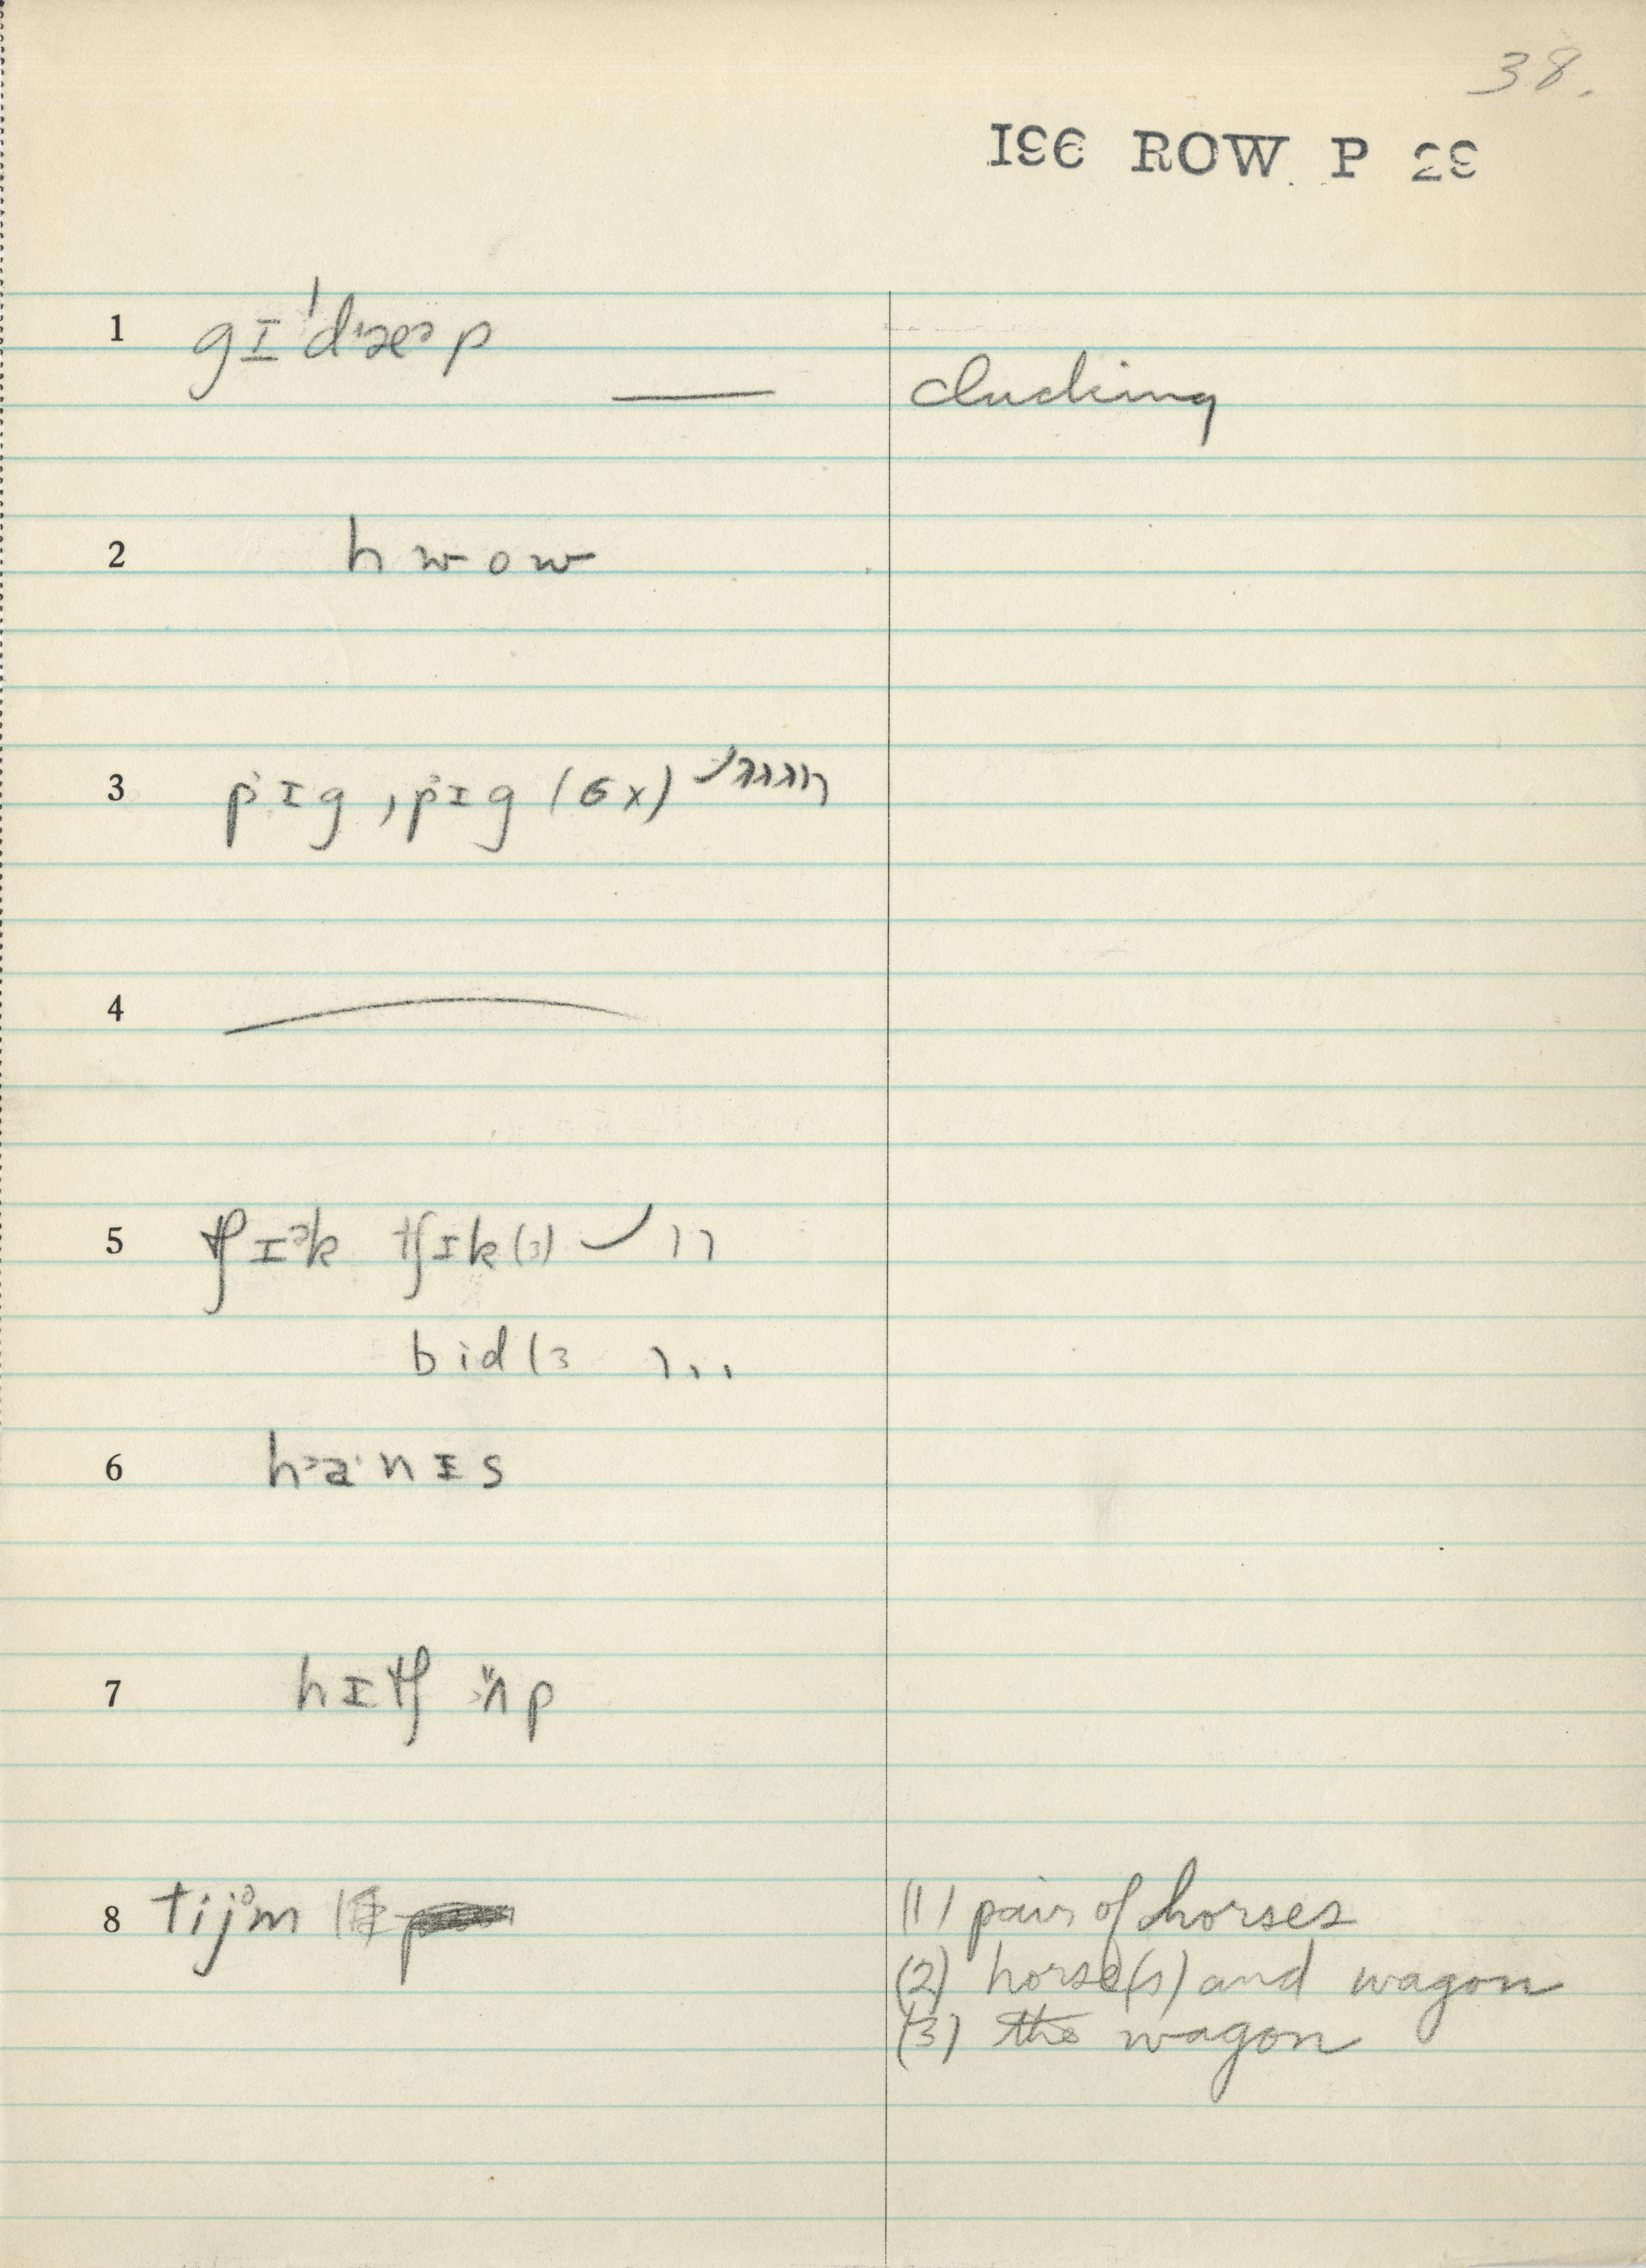 38.
1 gɪˈdæəp
clucking
2 hwow
3 pɪg, pɪg (6x)
4
5 tʃɪək tʃɪk (3)
bid (3
6 hanɪs
7 hɪtʃ ʌp
8 tijəm
(1) pair of horses
(2) horse(s) and wagon
(3) the wagon